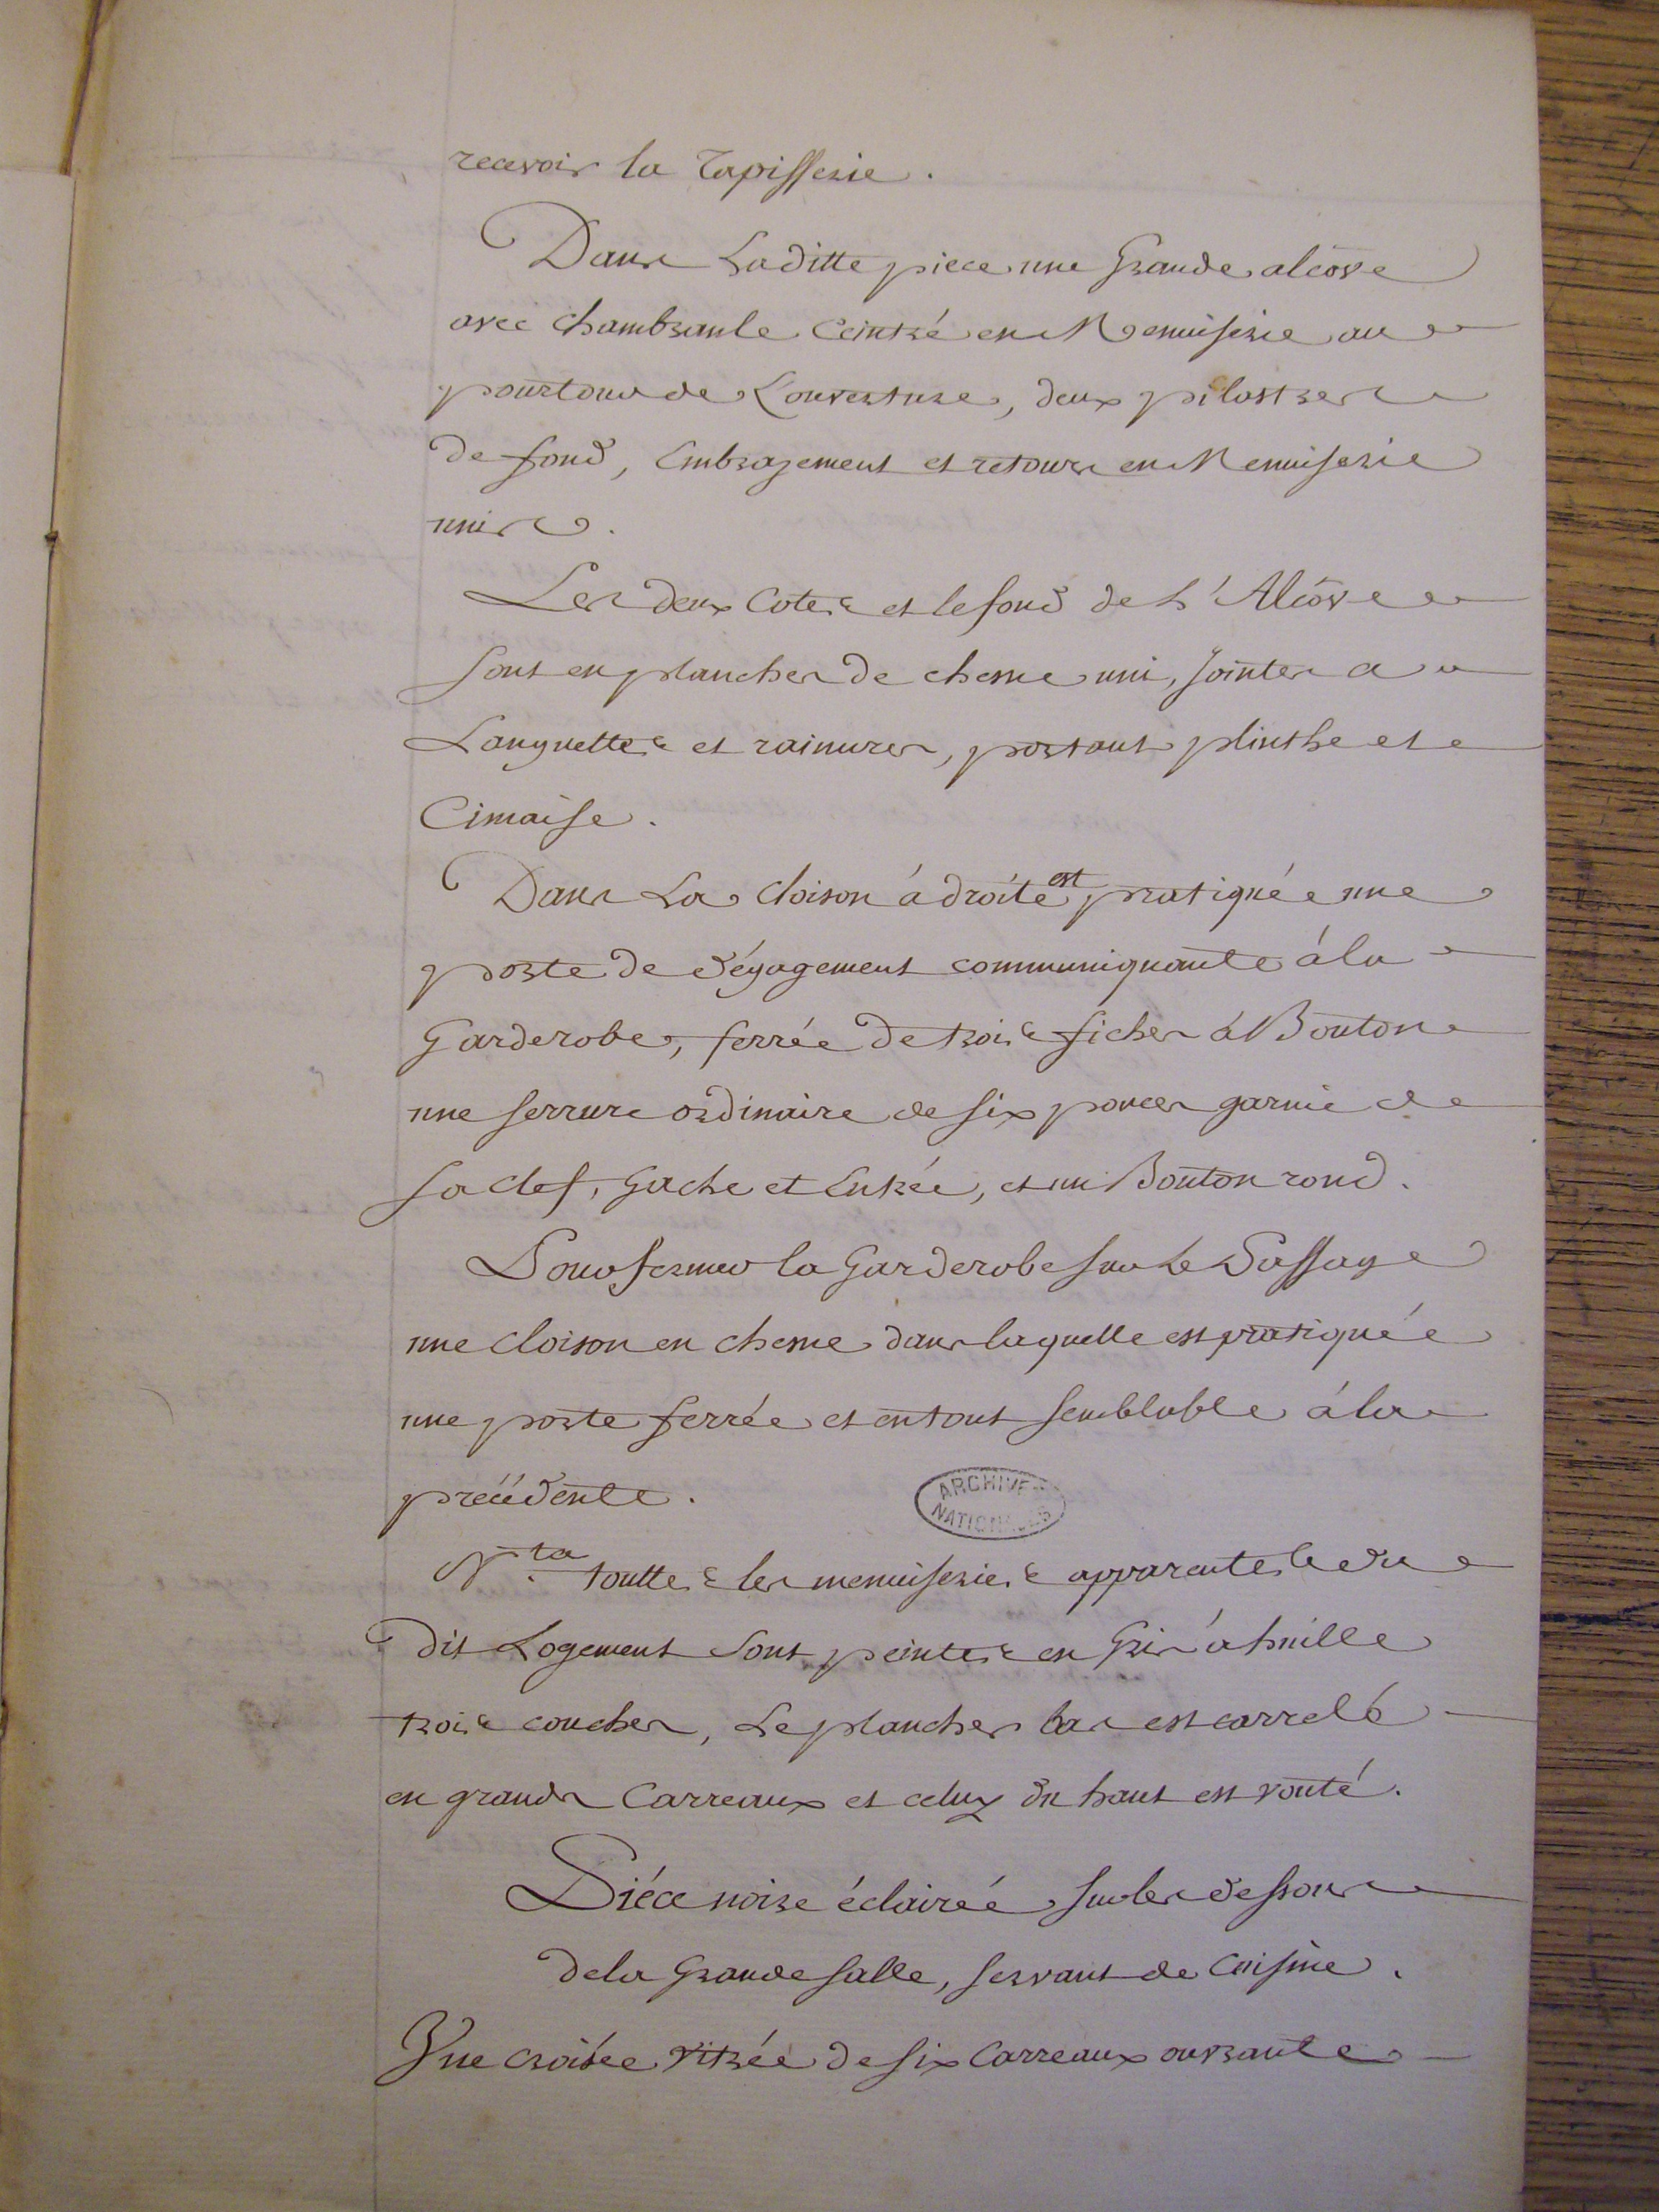 recevoir la Tapisserie.
Dans Laditte piece une Grande alcôve
avec chambranle Ceintré en Menuiserie au
pourtour de L'ouverture, deux pilastres
de fond, Embrazement et retours en Menuiserie
unis.
Les deux Cotés et le fond de L'Alcôve
sont en planches de chesne uni, Jointes a
Languettes et rainures, portant plinthe et
Cimaise.
Dans La Cloison à droite est pratiquée une
porte de dégagement communiquante à la
Garderobe, ferrée de trois fiches à Bouton
une serrure ordinaire de six pouces garnie de
sa clef, Gache et Entrée, et un Bouton rond.
Pour fermer la Garderobe sur Le Passage
une Cloison en chesne dans laquelle est pratiquée
une porte ferrée et en tout semblable à la
précédente.
ARCHIVES
NATIONALES
N.ta touttes les menuiseries apparentes de
dit Logement sont peintes en Gris à huille
trois couches, Le plancher bas est carrelé
en grands Carreaux et celuy du haut est vouté.
Piéce noire éclairée sur les dessous
de la Grande salle, servant de Cuisine.
Une croisée vitrée de six Carreaux ouvrante